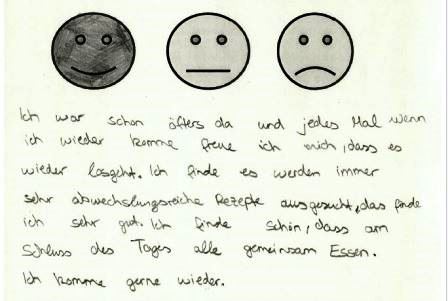 Ich war schon öfters da und jedes Mal wenn
ich wieder komme freue ich mich, dass es
wieder losgeht. Ich finde es werden immer
sehr abwechslungsreiche Rezepte ausgesucht, das finde
ich sehr gut. Ich finde schön, dass am
Schluss des Tages alle gemeinsam Essen.
Ich komme gerne wieder.